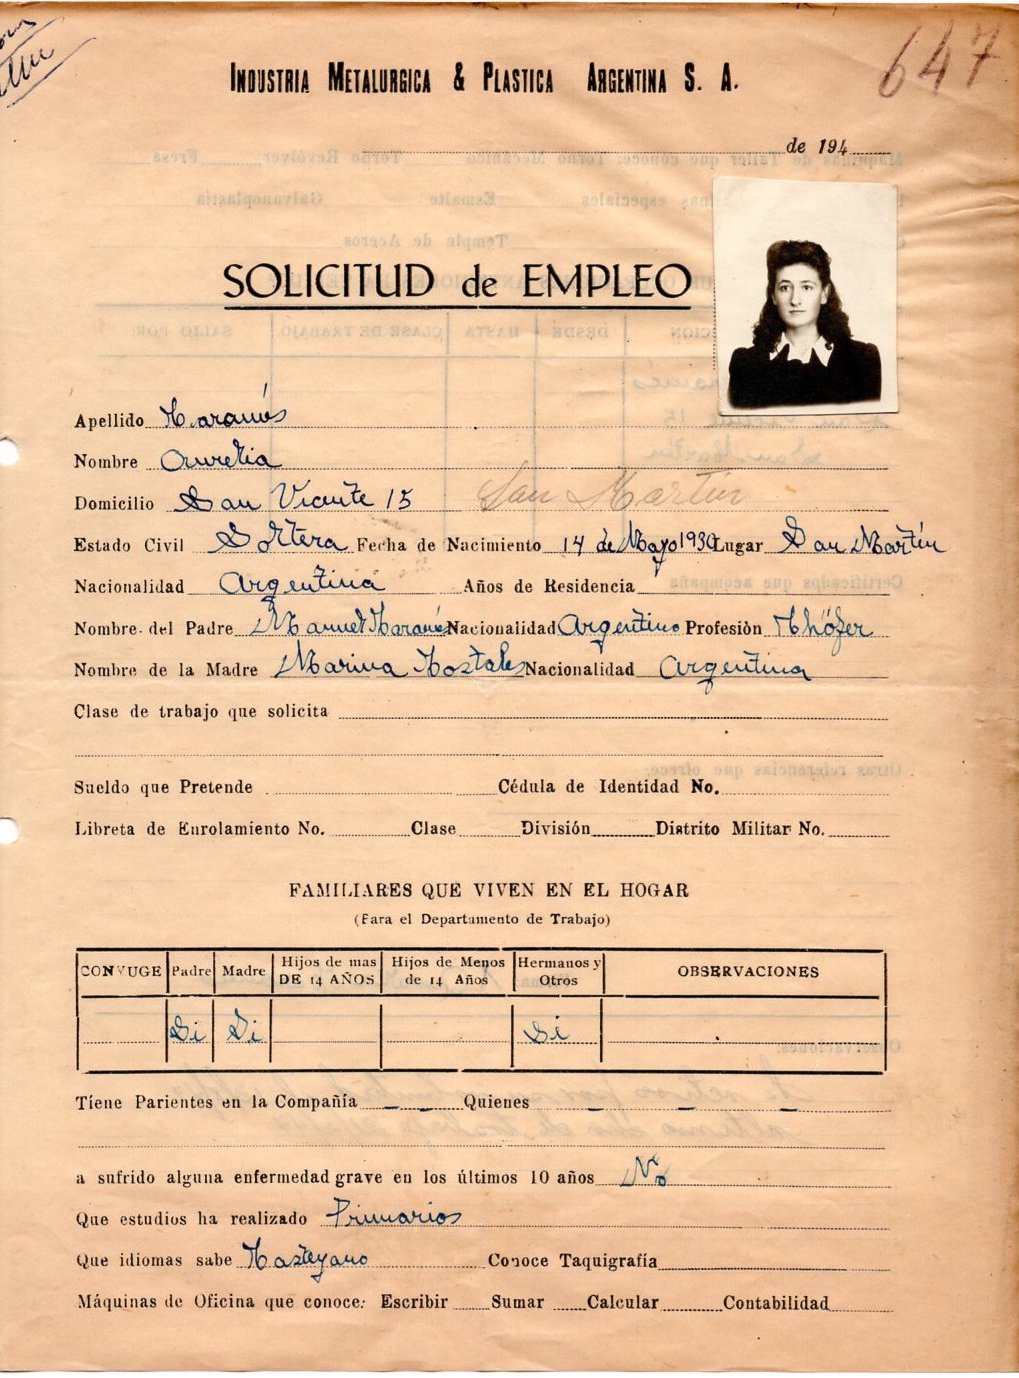 647
INDUSTRIA METALURGICA & PLASTICA ARGENTINA S. A.
de 194
SOLICITUD de EMPLEO
Apellido
Nombre Aurelia
Domicilio San Vicente 15 San Martín
Estado Civil Soltera Fecha de Nacimiento 14 de Mayo 1930 Lugar San Martín
Nacionalidad Argentina Años de Residencia
Nombre del Padre Manuel Nacionalidad Argentino Profesión Chófer
Nombre de la Madre Marina Nacionalidad Argentina
Clase de trabajo que solicita
Sueldo que Pretende Cédula de Identidad No.
Libreta de Enrolamiento No. Clase División Distrito Militar No.
FAMILIARES QUE VIVEN EN EL HOGAR
(Para el Departamento de Trabajo)
CONYUGE Padre Madre Hijos de mas DE 14 AÑOS Hijos de Menos de 14 Años Hermanos y Otros OBSERVACIONES
Si Si Si
Tiene Parientes en la Compañía — — Quienes — — —
a sufrido alguna enfermedad grave en los últimos 10 años No
Que estudios ha realizado Primarios
Que idiomas sabe Casteyano Conoce Taquigrafía
Máquinas de Oficina que conoce: Escribir Sumar Calcular Contabilidad